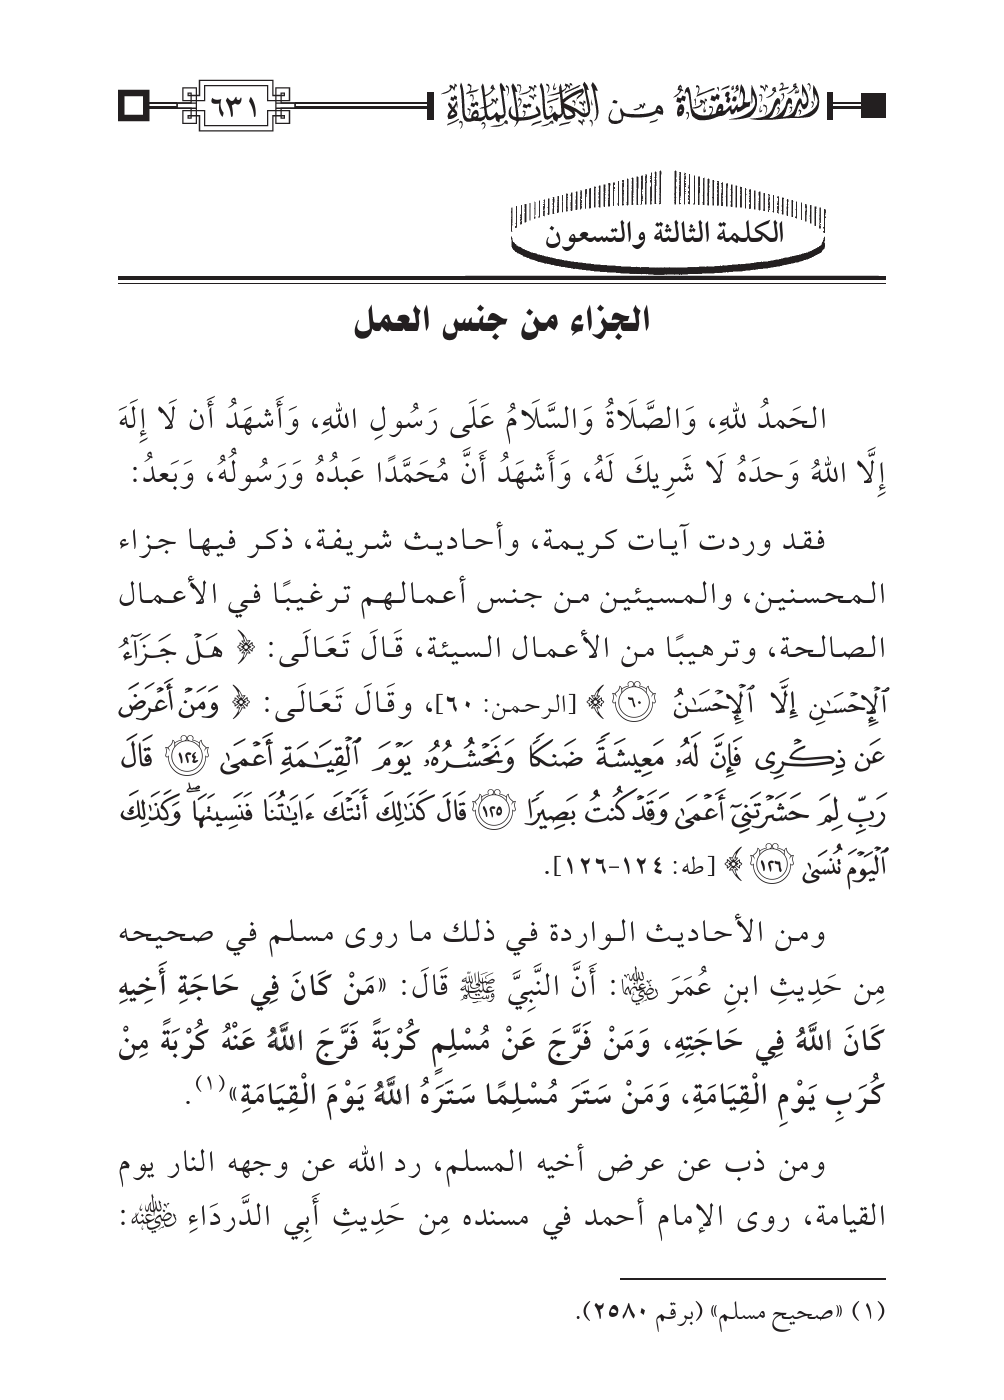 الدُّرَرُ المُنْتَقَاةُ مِنَ الكَلِمَاتِ المُلْقَاةِ
٦٣١
الكلمة الثالثة والتسعون
الجزاء من جنس العمل
الحَمدُ للهِ، وَالصَّلَاةُ وَالسَّلَامُ عَلَى رَسُولِ اللهِ، وَأَشهَدُ أَن لَا إِلَهَ
إِلَّا اللهُ وَحدَهُ لَا شَرِيكَ لَهُ، وَأَشهَدُ أَنَّ مُحَمَّدًا عَبدُهُ وَرَسُولُهُ، وَبَعدُ:
فقد وردت آيات كريمة، وأحاديث شريفة، ذكر فيها جزاء
المحسنين، والمسيئين من جنس أعمالهم ترغيبًا في الأعمال
الصالحة، وترهيبًا من الأعمال السيئة، قَالَ تَعَالَى: ﴿ هَلْ جَزَآءُ
ٱلْإِحْسَٰنِ إِلَّا ٱلْإِحْسَٰنُ ٦٠ ﴾ [الرحمن: ٦٠]، وقَالَ تَعَالَى: ﴿ وَمَنْ أَعْرَضَ
عَن ذِكْرِى فَإِنَّ لَهُۥ مَعِيشَةً ضَنكًا وَنَحْشُرُهُۥ يَوْمَ ٱلْقِيَٰمَةِ أَعْمَىٰ ١٢٤ قَالَ
رَبِّ لِمَ حَشَرْتَنِىٓ أَعْمَىٰ وَقَدْ كُنتُ بَصِيرًا ١٢٥ قَالَ كَذَٰلِكَ أَتَتْكَ ءَايَٰتُنَا فَنَسِيتَهَا ۖ وَكَذَٰلِكَ
ٱلْيَوْمَ تُنسَىٰ ١٢٦ ﴾ [طه: ١٢٤-١٢٦].
ومن الأحاديث الواردة في ذلك ما روى مسلم في صحيحه
مِن حَدِيثِ ابنِ عُمَرَ رضي الله عنهما: أَنَّ النَّبِيَّ ﷺ قَالَ: «مَنْ كَانَ فِي حَاجَةِ أَخِيهِ
كَانَ اللَّهُ فِي حَاجَتِهِ، وَمَنْ فَرَّجَ عَنْ مُسْلِمٍ كُرْبَةً فَرَّجَ اللَّهُ عَنْهُ كُرْبَةً مِنْ
كُرَبِ يَوْمِ الْقِيَامَةِ، وَمَنْ سَتَرَ مُسْلِمًا سَتَرَهُ اللَّهُ يَوْمَ الْقِيَامَةِ»(١).
ومن ذب عن عرض أخيه المسلم، رد الله عن وجهه النار يوم
القيامة، روى الإمام أحمد في مسنده مِن حَدِيثِ أَبِي الدَّردَاءِ رضي الله عنه:
(١) «صحيح مسلم» (برقم ٢٥٨٠).